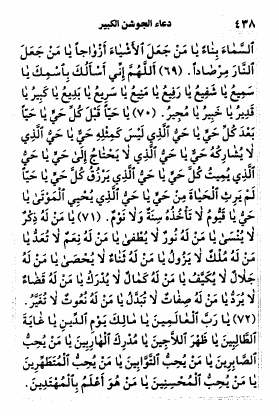 ٤٣٨ دعاء الجوشن الكبير
السَّمَاءَ بِنَاءً يَا مَنْ جَعَلَ الْأَشْيَاءَ أَزْوَاجاً يَا مَنْ جَعَلَ
النَّارَ مِرْصَاداً. (٦٩) اَللَّهُمَّ إِنِّي أَسْأَلُكَ بِاسْمِكَ يَا
سَمِيعُ يَا شَفِيعُ يَا رَفِيعُ يَا مَنِيعُ يَا سَرِيعُ يَا بَدِيعُ يَا كَبِيرُ يَا
قَدِيرُ يَا خَبِيرُ يَا مُجِيرُ. (٧٠) يَا حَيّاً قَبْلَ كُلِّ حَيٍّ يَا حَيّاً
بَعْدَ كُلِّ حَيٍّ يَا حَيُّ الَّذِي لَيْسَ كَمِثْلِهِ حَيٌّ يَا حَيُّ الَّذِي
لَا يُشَارِكُهُ حَيٌّ يَا حَيُّ الَّذِي لَا يَحْتَاجُ إِلَىٰ حَيٍّ يَا حَيُّ
الَّذِي يُمِيتُ كُلَّ حَيٍّ يَا حَيُّ الَّذِي يَرْزُقُ كُلَّ حَيٍّ يَا حَيّاً
لَمْ يَرِثِ الْحَيَاةَ مِنْ حَيٍّ يَا حَيُّ الَّذِي يُحْيِي الْمَوْتَىٰ يَا
حَيُّ يَا قَيُّومُ لَا تَأْخُذُهُ سِنَةٌ وَلَا نَوْمٌ. (٧١) يَا مَنْ لَهُ ذِكْرٌ
لَا يُنْسَىٰ يَا مَنْ لَهُ نُورٌ لَا يُطْفَىٰ يَا مَنْ لَهُ نِعَمٌ لَا تُعَدُّ يَا
مَنْ لَهُ مُلْكٌ لَا يَزُولُ يَا مَنْ لَهُ ثَنَاءٌ لَا يُحْصَىٰ يَا مَنْ لَهُ
جَلَالٌ لَا يُكَيَّفُ يَا مَنْ لَهُ كَمَالٌ لَا يُدْرَكُ يَا مَنْ لَهُ قَضَاءٌ
لَا يُرَدُّ يَا مَنْ لَهُ صِفَاتٌ لَا تُبَدَّلُ يَا مَنْ لَهُ نُعُوتٌ لَا تُغَيَّرُ.
(٧٢) يَا رَبَّ الْعَالَمِينَ يَا مَالِكَ يَوْمِ الدِّينِ يَا غَايَةَ
الطَّالِبِينَ يَا ظَهْرَ اللَّاجِينَ يَا مُدْرِكَ الْهَارِبِينَ يَا مَنْ يُحِبُّ
الصَّابِرِينَ يَا مَنْ يُحِبُّ التَّوَّابِينَ يَا مَنْ يُحِبُّ الْمُتَطَهِّرِينَ
يَا مَنْ يُحِبُّ الْمُحْسِنِينَ يَا مَنْ هُوَ أَعْلَمُ بِالْمُهْتَدِينَ.